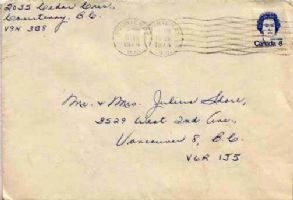 2035 Cedar Cres.
Courtenay, B.C.
V9N 3B8
1974
Canada 8
Mr. & Mrs. Julius Shore,
3529 West 2nd Ave.,
Vancouver 8, B.C.
V6R 1J5